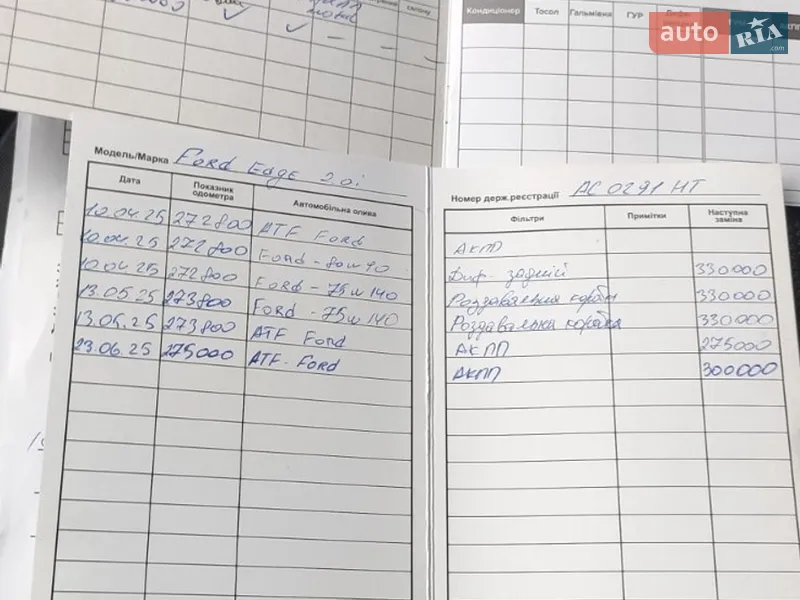 Кондиціонер Тосол Гальмівна ГУР
auto RIA .com
Модель/Марка Ford Edge 2.0i
Дата Показник одометра Автомобільна олива
10.04.25 272800 ATF Ford
10.04.25 272800 Ford - 80w90
10.04.25 272800 Ford - 75w140
13.05.25 273800 Ford - 75w140
13.05.25 273800 ATF Ford
23.06.25 275000 ATF-Ford
Номер держ.реєстрації АС 0291 НТ
Фільтри Примітки Наступна заміна
АКПП
Диф. задній 330000
Роздавальна коробка 330000
Роздавальна коробка 330000
АКПП 275000
АКПП 300000